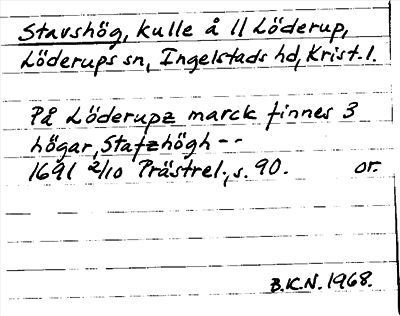 Stavshög, kulle å ll Löderup,
Löderups sn, Ingelstads hd, Krist. l.
På Löderupz marck finnes 3
högar, Stafzhögh - -
1691 2/10 Prästrel., s. 90. or.
B.K.N. 1968.